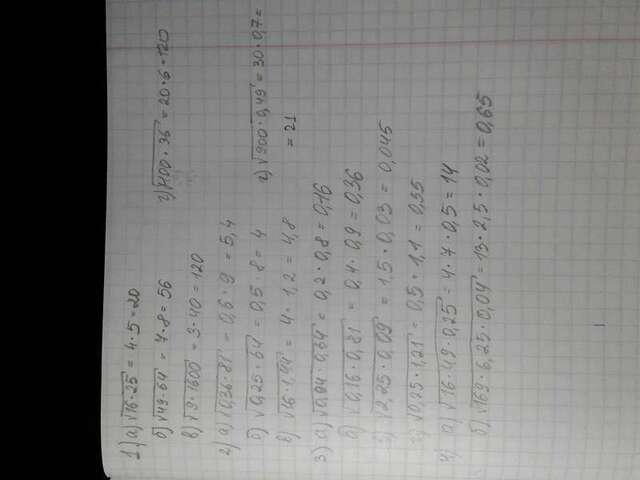 1) а) √16·25 = 4·5=20
б) √49·64 = 7·8=56
в) √9·1600 = 3·40=120
г) √400·36 = 20·6=120
2) а) √0,36·81 = 0,6·9=5,4
б) √0,25·64 = 0,5·8=4
в) √16·1,44 = 4·1,2=4,8
г) √900·0,49 = 30·0,7=
= 21
3) а) √0,04·0,64 = 0,2·0,8=0,16
б) √0,16·0,81 = 0,4·0,9=0,36
в) √2,25·0,09 = 1,5·0,03=0,045
г) √0,25·1,21 = 0,5·1,1=0,55
4) а) √16·49·0,25 = 4·7·0,5=14
б) √169·6,25·0,04 = 13·2,5·0,02=0,65